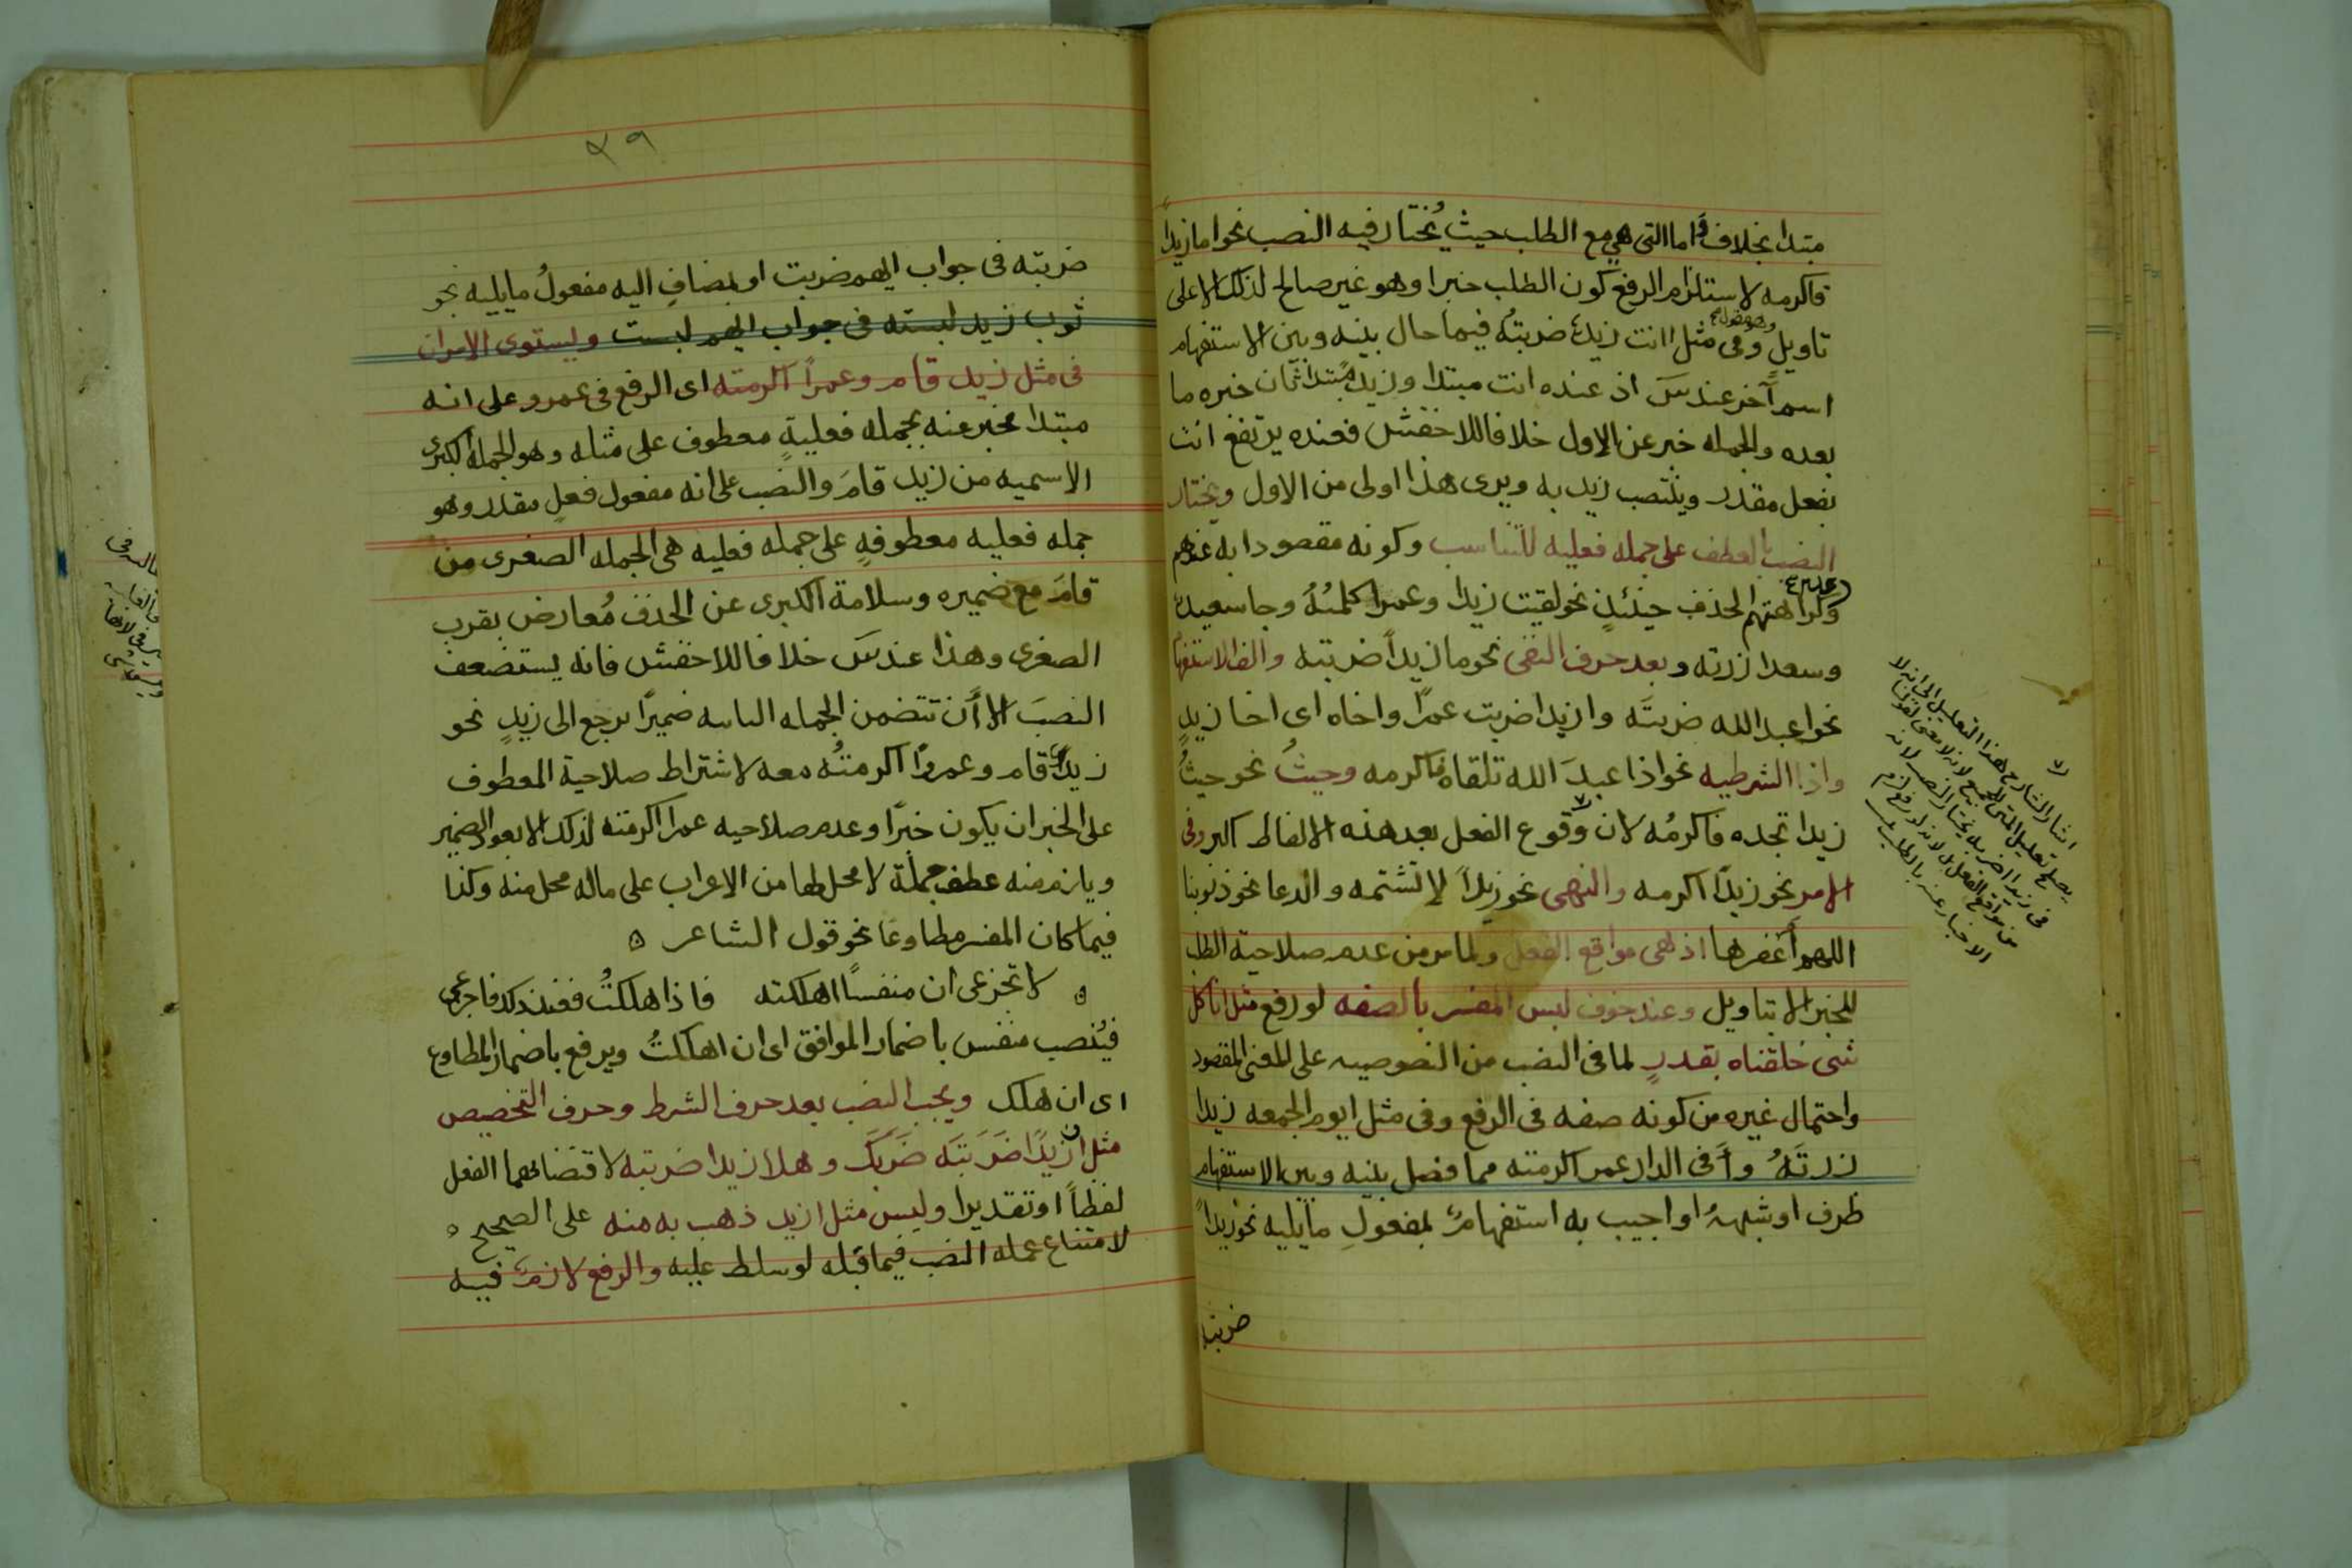 مبتدا بخلاف اما التى هي مع الطلب حيث يُختار فيه النصب نحو اما زيداً
فاكرمه لاستلزام الرفع كون الطلب خبرا وهو غير صالح لذلك الا على
تاويلٍ وفى مثل اانت زيدٌ ضربتُه فيما حال بينه وبين الاستفهام
اسم آخر عند س اذ عنده انت مبتدا وزيد مبتدا ثان خبره ما
بعده والجمله خبر عن الاول خلافا للاخفش فعنده يرتفع انت
بفعل مقدر وينتصب زيد به ويرى هذا اولى من الاول ويختار
النصب بالعطف على جمله فعليه للتناسب وكونه مقصودا به عندهم
وكراهتهم الحذف حينئذٍ نحو لقيت زيدا وعمرا كلمتُهُ وجا سعيدٌ
وسعدا زرته وبعد حرف النفى نحو ما زيداً ضربته والف الاستفهام
نحو اعبد الله ضربتَه وازيدا ضربت عمرًا واخاه اى اخا زيدٍ
واذا الشرطيه نحو اذا عبدَ الله تلقاه فاكرمه وحيثُ نحو حيثُ
زيدا تجده فاكرمُه لان وقوع الفعل بعد هذه الالفاظ اكثر وفى
الامر نحو زيدًا اكرمه والنهى نحو زيداً لا تشتمه والدعا نحو ذنوبنا
اللهم أغفرها اذ هى مواقع الفعل ولما مر من عدم صلاحية الطلب
للخبر الا بتاويل وعند خوف لبس المفسر بالصفه لو رفع مثل انا كل
شى خلقناه بقدرٍ لما فى النصب من النصوصيه على المعنى المقصود
واحتمال غيره من كونه صفه فى الرفع وفى مثل ايوم الجمعه زيدا
زرتَهُ وأَفى الدار عمرا اكرمته مما فصل بينه وبين الاستفهام
ظرف او شبهه او اجيب به استفهامٌ بمفعولِ مايليه نحو زيداً
ضربته
اشار الشارح بهذا التعليل الى انه لا
يصلح تعليل المتن للجميع لانه لا معنى لقولنا
فى زيدا اضربه يختار النصب لانه
من مواقع الفعل بل لانه لو رفع لزم
الاخبار عنه بالطلب
٣٩
ضربته فى جواب ايهم ضربت او بمضافِ اليه مفعولُ مايليه نحو
ثوب زيد لبسته فى جواب ايهم لبست ويستوى الامران
فى مثل زيد قام وعمراً اكرمته اى الرفع فى عمرو على انه
مبتدا مخبر عنه بجمله فعليةٍ معطوف على مثله وهو الجمله الكبرى
الاسميه من زيد قامَ والنصب على انه مفعول فعلٍ مقدر وهو
جمله فعليه معطوفهٍ على جمله فعليه هى الجمله الصغرى من
قامَ مع ضميره وسلامة الكبرى عن الحذف مُعارض بقرب
الصغرى وهذا عند س خلافا للاخفش فانه يستضعف
النصبَ الا أن تتضمن الجمله الثانيه ضميرًا يرجع الى زيدٍ نحو
زيدٌ قام وعمروًا اكرمتُه معه لاشتراط صلاحية المعطوف
على الخبر ان يكون خبرًا وعدم صلاحيه عمرا اكرمته لذلك الا بعود الضمير
ويلزم منه عطف جملة لا محل لها من الاعراب على ماله محل منه وكذا
فيما كان المفسر مطاوعًا نحو قول الشاعر ه
ه لا تجزعى ان منفسًا اهلكته فاذا هلكتُ فعند ذلك فاجزعى
فيُنصب منفس باضمار الموافق اى ان اهلكتُ ويرفع باضمار المطاوع
اى ان هلك ويجب النصب بعد حرف الشرط وحرف التخصيص
مثل ان زيدًا ضَرَبتَه ضَرَبَك وهلا زيدا ضربته لاقتضائهما الفعل
لفظاً او تقديرا وليس مثل ازيد ذهب به منه على الصحيح ه
لامتناع عمله النصب فيما قبله لو سلط عليه والرفع لازمٌ فيه